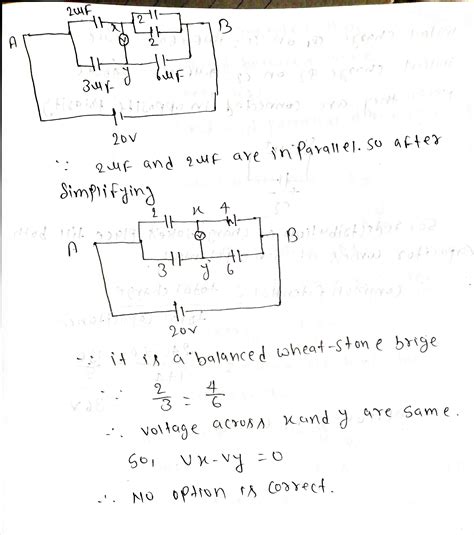 2μF
2
x
A
V
2
B
3μF
y
6μF
20V
∵ 2μF and 2μF are in parallel. so after
Simplifying
2
x
4
A
V
B
3
y
6
20V
∵ it is a balanced wheat-stone brige
∵ 2/3 = 4/6
∴ voltage across x and y are same.
So, Vx-Vy = 0
∴ No option is correct.